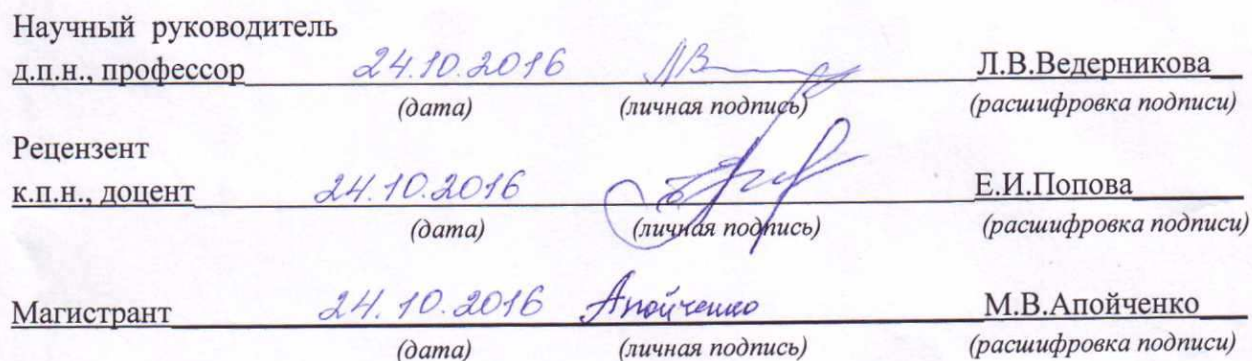 Научный руководитель
д.п.н., профессор 24.10.2016 Л.В.Ведерникова
(дата) (личная подпись) (расшифровка подписи)
Рецензент
к.п.н., доцент 24.10.2016 Е.И.Попова
(дата) (личная подпись) (расшифровка подписи)
Магистрант 24.10.2016 Апойченко М.В.Апойченко
(дата) (личная подпись) (расшифровка подписи)